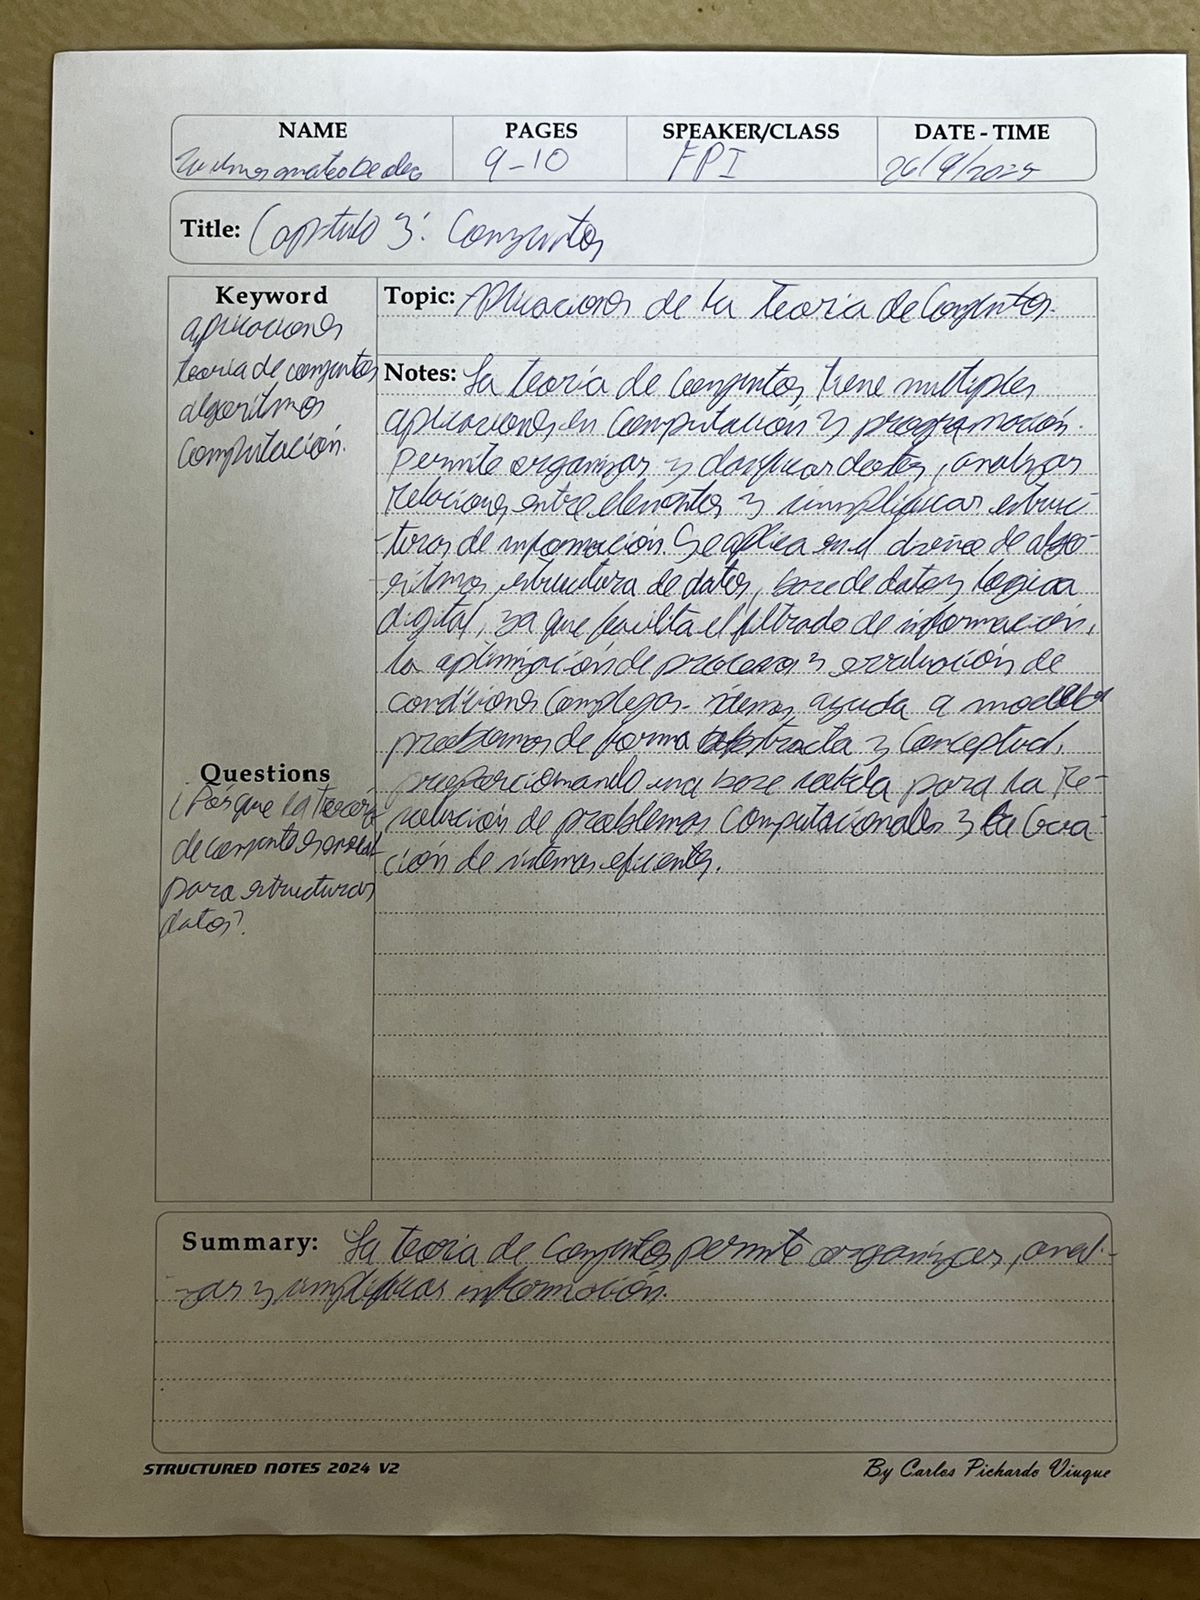 NAME
PAGES
SPEAKER/CLASS
DATE - TIME
9-10
FPI
26/9/2025
Title: Capitulo 3: Conjuntos
Keyword
aplicaciones
teoria de conjuntos
algoritmos
Computación.
Topic: Aplicaciones de la teoria de Conjuntos.
Notes: La teoría de Conjuntos tiene multiples
aplicaciones en Computación y programación.
Permite organizar y clasificar datos, analizar
relaciones entre elementos y simplificar estruc-
turas de información. Se aplica en el diseño de algo-
ritmos, estructura de datos, base de datos y logica
digital, ya que facilita el filtrado de información,
la optimización de procesos y evaluación de
condiciones Complejas. ayuda a modelar
problemas de forma abstracta y Conceptual,
proporcionando una base solida para la Re-
solución de problemas Computacionales y la Crea-
ción de sistemas eficientes.
Questions
¿Por que la teoria
de conjuntos es
para estructuras
datos?
Summary: La teoria de Conjuntos permite organizar, anali-
zar y simplificar información.
STRUCTURED NOTES 2024 V2
By Carlos Pichardo Viuque